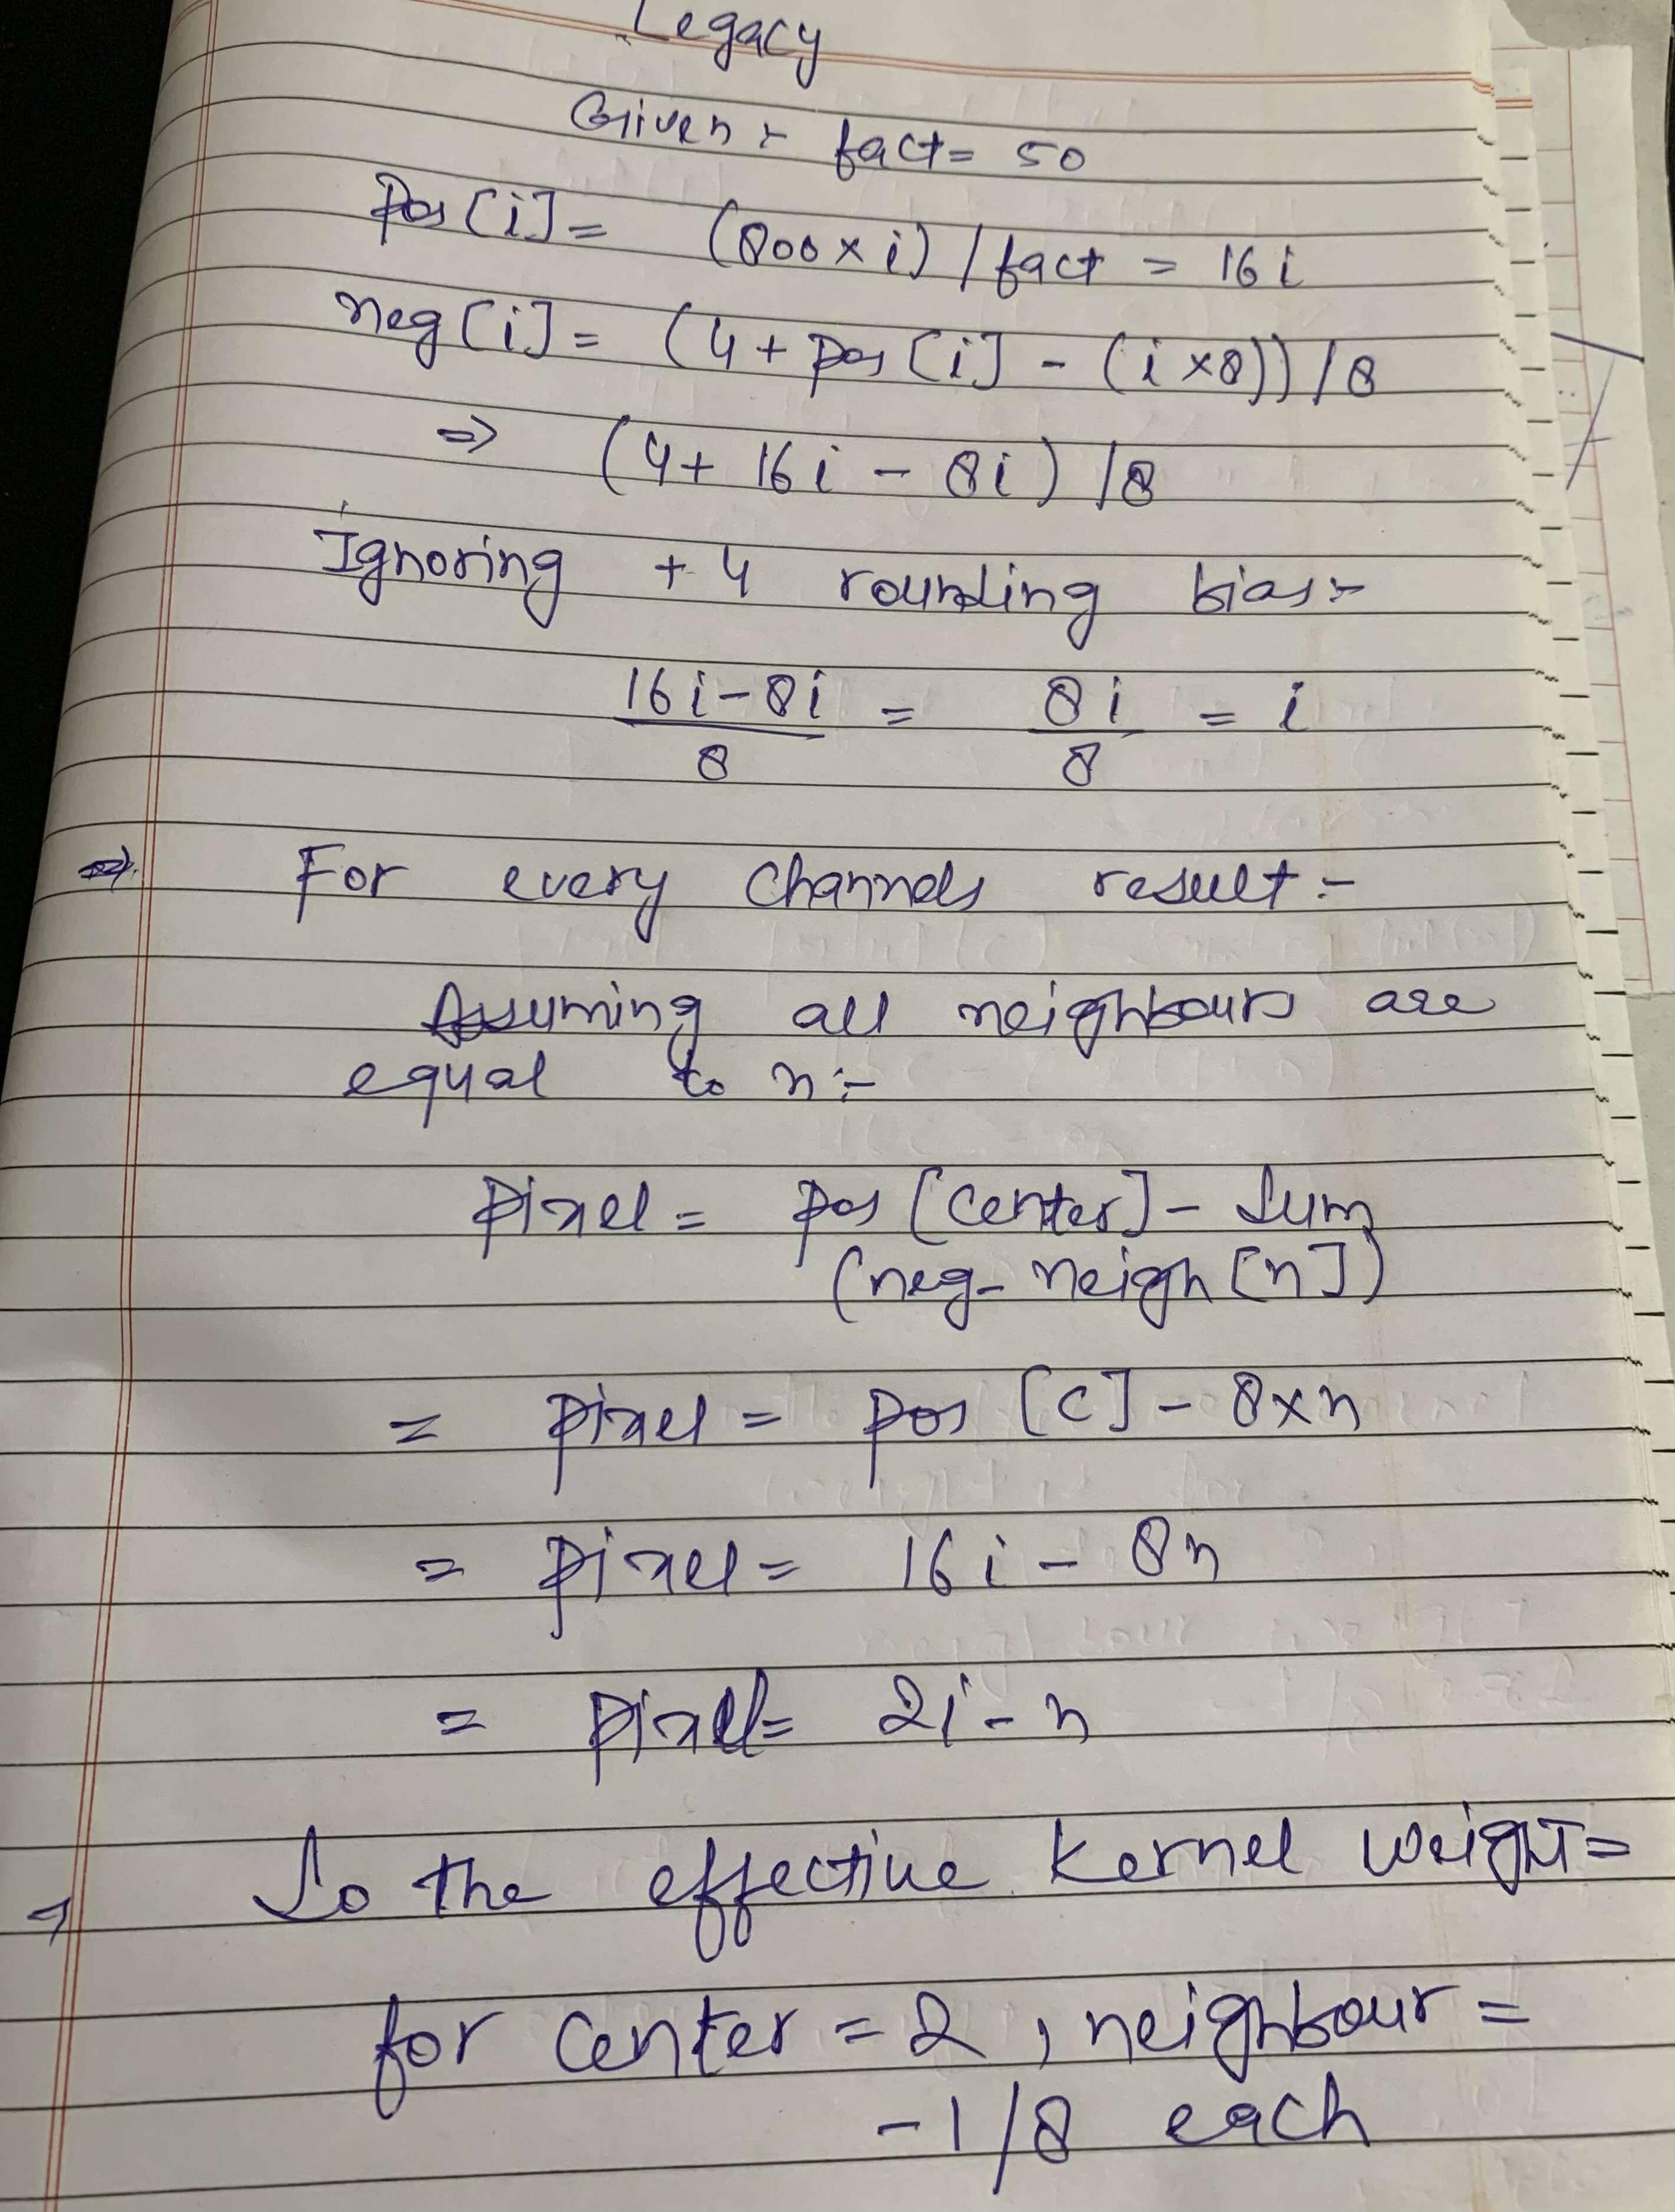 Legacy
Given :- fact = 50
Pos [i] = (800 x i) / fact = 16 i
neg [i] = (4 + pos [i] - (i x8)) / 8
=> (4 + 16 i - 8i) / 8
Ignoring + 4 rounding bias :-
16 i - 8i / 8 = 8 i / 8 = i
=> For every channels result :-
Assuming all neighbours are
equal to n :-
pixel = pos [center] - Sum
(neg_neigh [n])
= pixel = pos [c] - 8xn
= pixel = 16 i - 8n
= pixel = 2i - n
=> So the effective kernel weight =
for center = 2 , neighbour =
-1/8 each